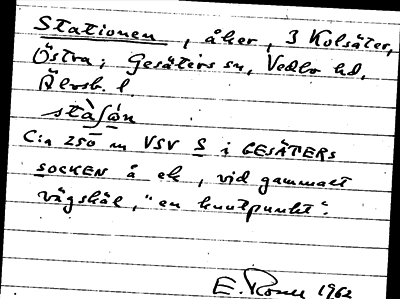 Stationen, åker, 3 Kolsäter,
Östra; Gesäters sn, Vedbo hd,
Älvsb. l.
C:a 250 m VSV S i GESÄTERS
SOCKEN å ek, vid gammalt
vägskäl, "en knutpunkt".
E. 1962